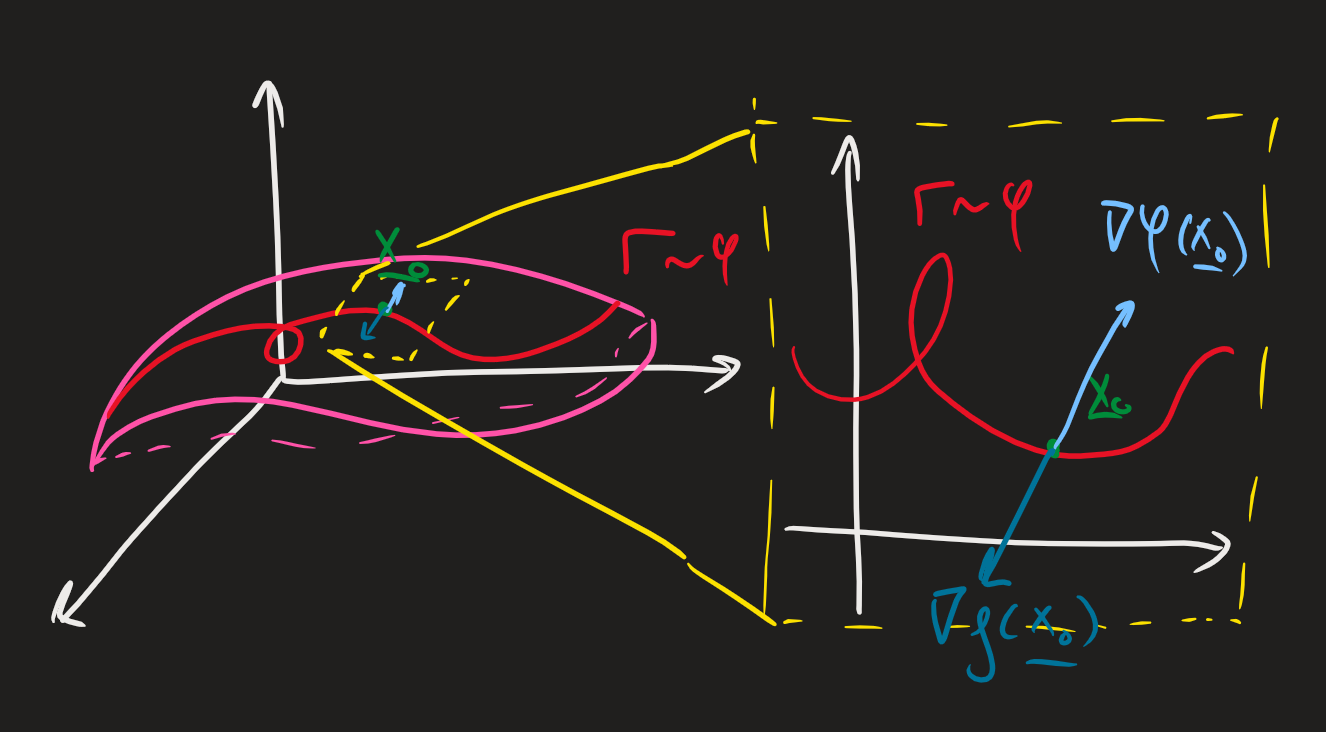 X₀
Γ~φ
Γ~φ
∇φ(x₀)
X₀
∇g(x₀)